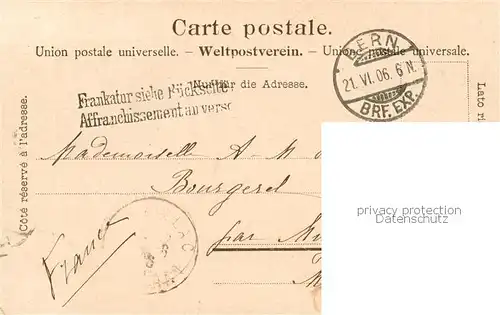 Carte postale.
Union postale universelle. – Weltpostverein. – Unione postale universale.
Nur für die Adresse.
BERN
21. VI. 06. 6 N.
BRF. EXP.
Frankatur siehe Rückseite
Affranchissement au verso
Côté réservé à l'adresse.
Lato ri
Mademoiselle A - M
Bourgerel
par
France
privacy protection
watermark